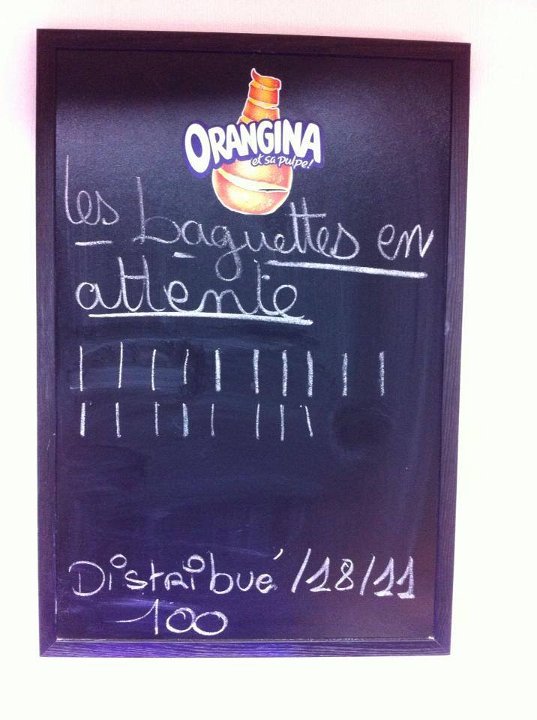 ORANGINA
et sa pulpe!
les baguettes en
attente
| | | | | | | | | |
| | | | | | | |
Distribué /18/11
100